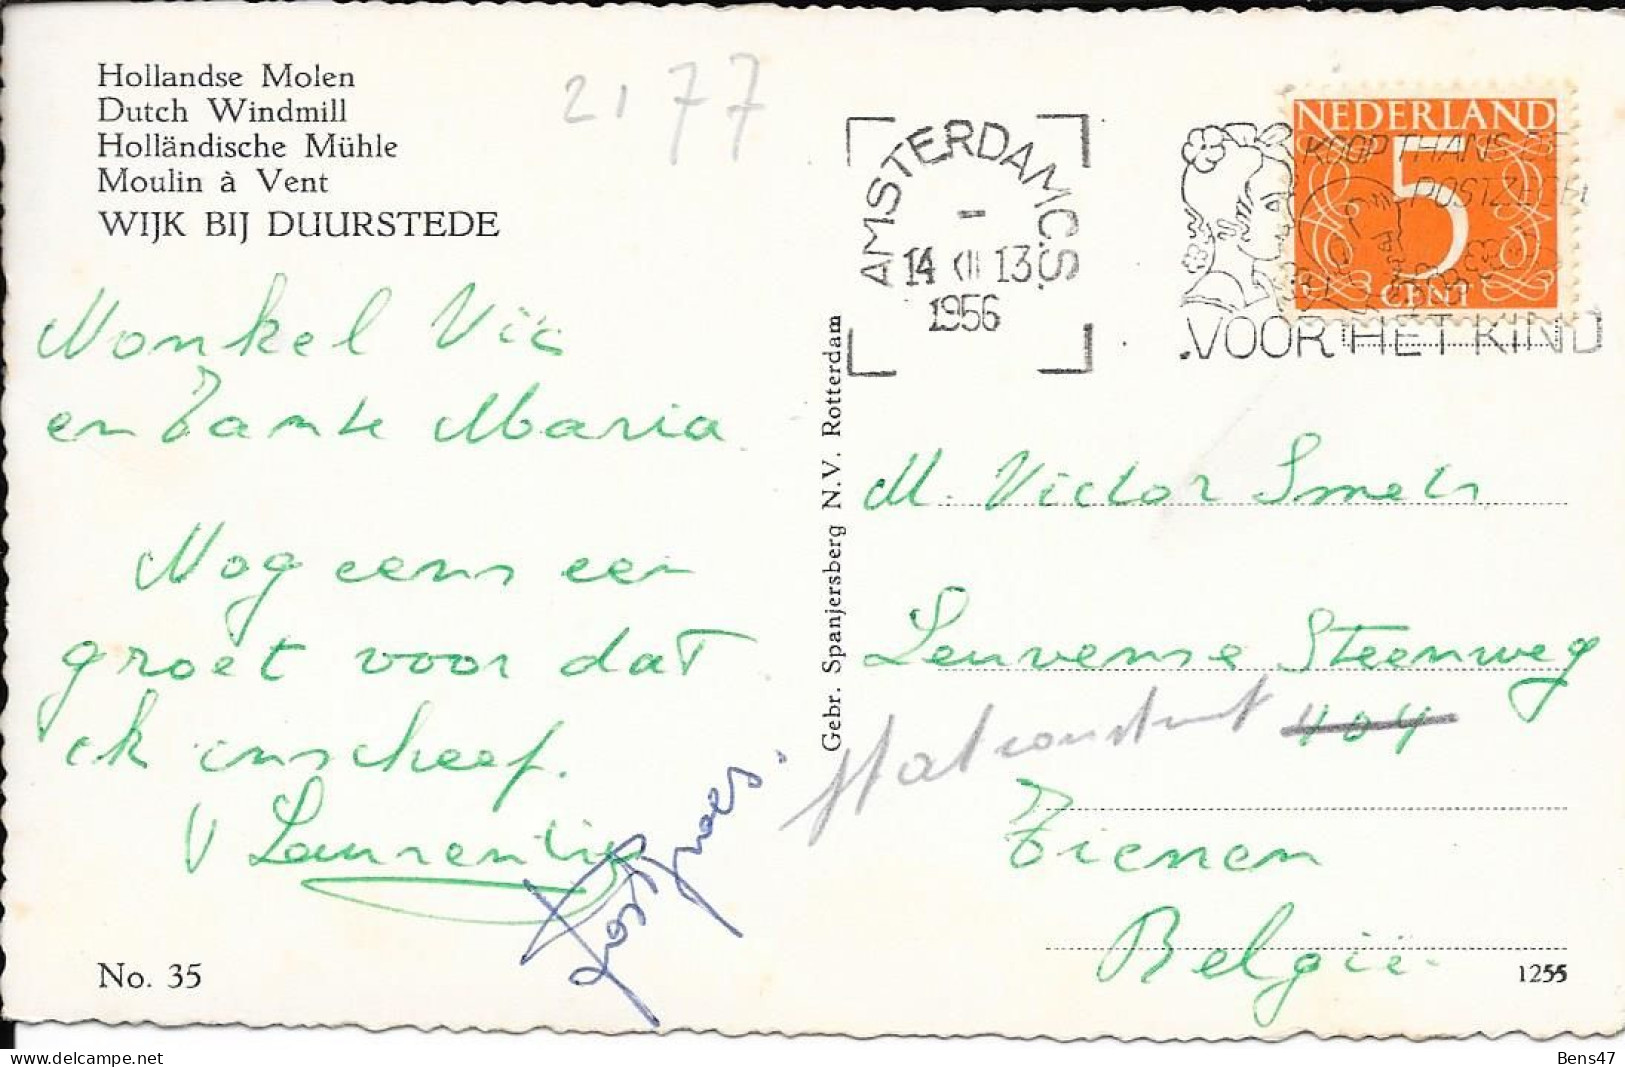 Hollandse Molen
Dutch Windmill
Holländische Mühle
Moulin à Vent
WIJK BIJ DUURSTEDE
2177
Nonkel Vic
en Tante Maria
Nog eens een
groet voor dat
ik inscheep.
No. 35
Gebr. Spanjersberg N.V. Rotterdam
AMSTERDAM C.S.
14 XII 13
1956
KOOP THANS DE
POSTZEGEL
VOOR HET KIND
NEDERLAND
5
CENT
M. Victor Smets
Leuvense Steenweg
404
Tienen
België
1255
Bens47